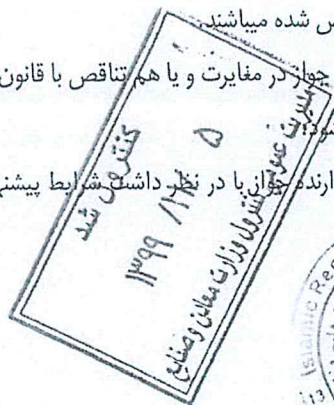 ص شده میباشند.
جواز در مغایرت و یا هم تناقص با قانون
ود؛
ارنده جواز با در نظر داشت شرایط پیشن
کنترول شد
۵ /۱۲/ ۱۳۹۹
مدیریت عمومی کنترول وزارت معادن و صنایع
Islamic Re
13